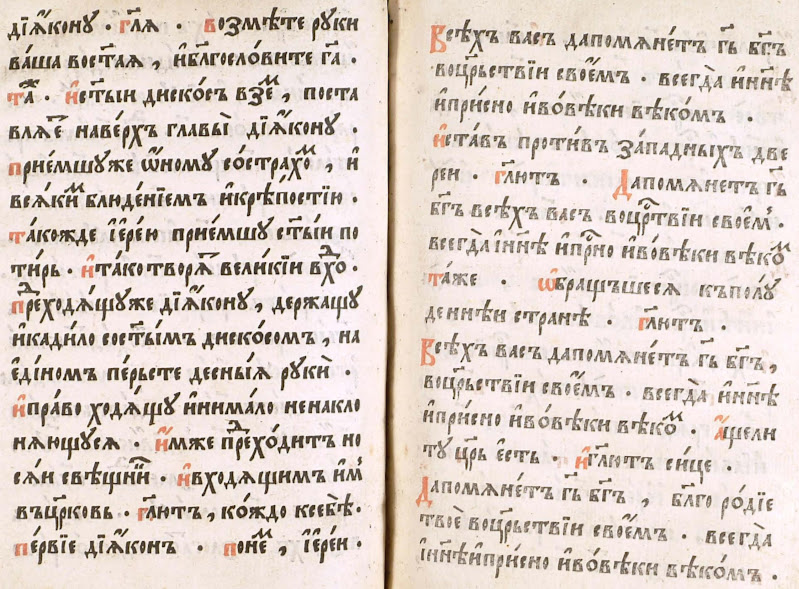 дїѧ́кону · гл҃ѧ · возмѣ́те руки
ва́ша во ст҃ая , и҆бл҃гослови́те гд҇а .
та́ж · и҆ ст҃ы́и ди́скосъ взе́м , поста
влѧ́е наве́рхъ главы̀ дїѧ́кону .
прие́мшуже ѿ ному со стра́хом , и҆
вся́ким блюде́нїемъ и҆крѣ́постїю .
та́кожде і҆ере́ю прие́мшу ст҃ы́и по
ти́рь · и҆та́ко творѧ́т вели́кїи вхо́д .
преходѧ́щуже дїѧ́кону , держа́щу
и҆кади́ло со ст҃ы́мъ ди́скосомъ , на
е҆ди́номъ пе́рьсте десны́ѧ руки̇̀ .
и҆пра́во ходѧ́щу и҆нима́ло ненакло
нѧ́ющуся · и҆́мже прехо́дитъ но
сѧ́и свѣщни́к · и҆входѧ́щимъ и҆́м
въ цр҃ковь · гл҃ютъ , ко́ждо ксебѣ̀ .
пе́рвїе дїѧ́конъ · поне́м , і҆ере́и .
Всѣ́хъ ва́съ да помѧне́тъ гд҇ь бг҃ъ
во цр҇ьствїи свое́мъ · всегда̀ и҆ нн҃ѣ
и҆ при́сно и҆ во вѣ́ки вѣко́мъ .
и҆ ста́въ проти́въ за́падныхъ две
реи · гл҃ютъ . Да помѧне́тъ гд҇ь
бг҃ъ всѣ́хъ ва́съ во цр҇твїи свое́м .
всегда̀ и҆ нн҃ѣ и҆ пр҇но и҆ во вѣ́ки вѣко́м
та́же · ѡ҆бра́щьшеся къ полу
де́ннѣи странѣ̀ · гл҃ютъ .
Всѣ́хъ ва́съ да помѧне́тъ гд҇ь бг҃ъ ,
во цр҇ьствїи свое́мъ · всегда̀ и҆ нн҃ѣ
и҆ при́сно и҆ во вѣ́ки вѣко́м . а҆́щели
ту цр҃ь е҆́сть · и҆ гл҃ютъ си́це .
Да помѧне́тъ гд҇ь бг҃ъ , бл҃горо́дїе
твоѐ во цр҇ьствїи свое́мъ · всегда̀
і҆ нн҃ѣ и҆ при́сно и҆ во вѣ́ки вѣко́мъ .